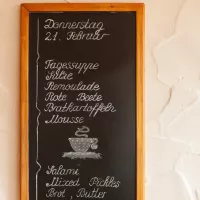 Donnerstag
21. Februar
Tagessuppe
Sülze
Remoulade
Rote Beete
Bratkartoffeln
Mousse
Salami
Mixed Pickles
Brot, Butter